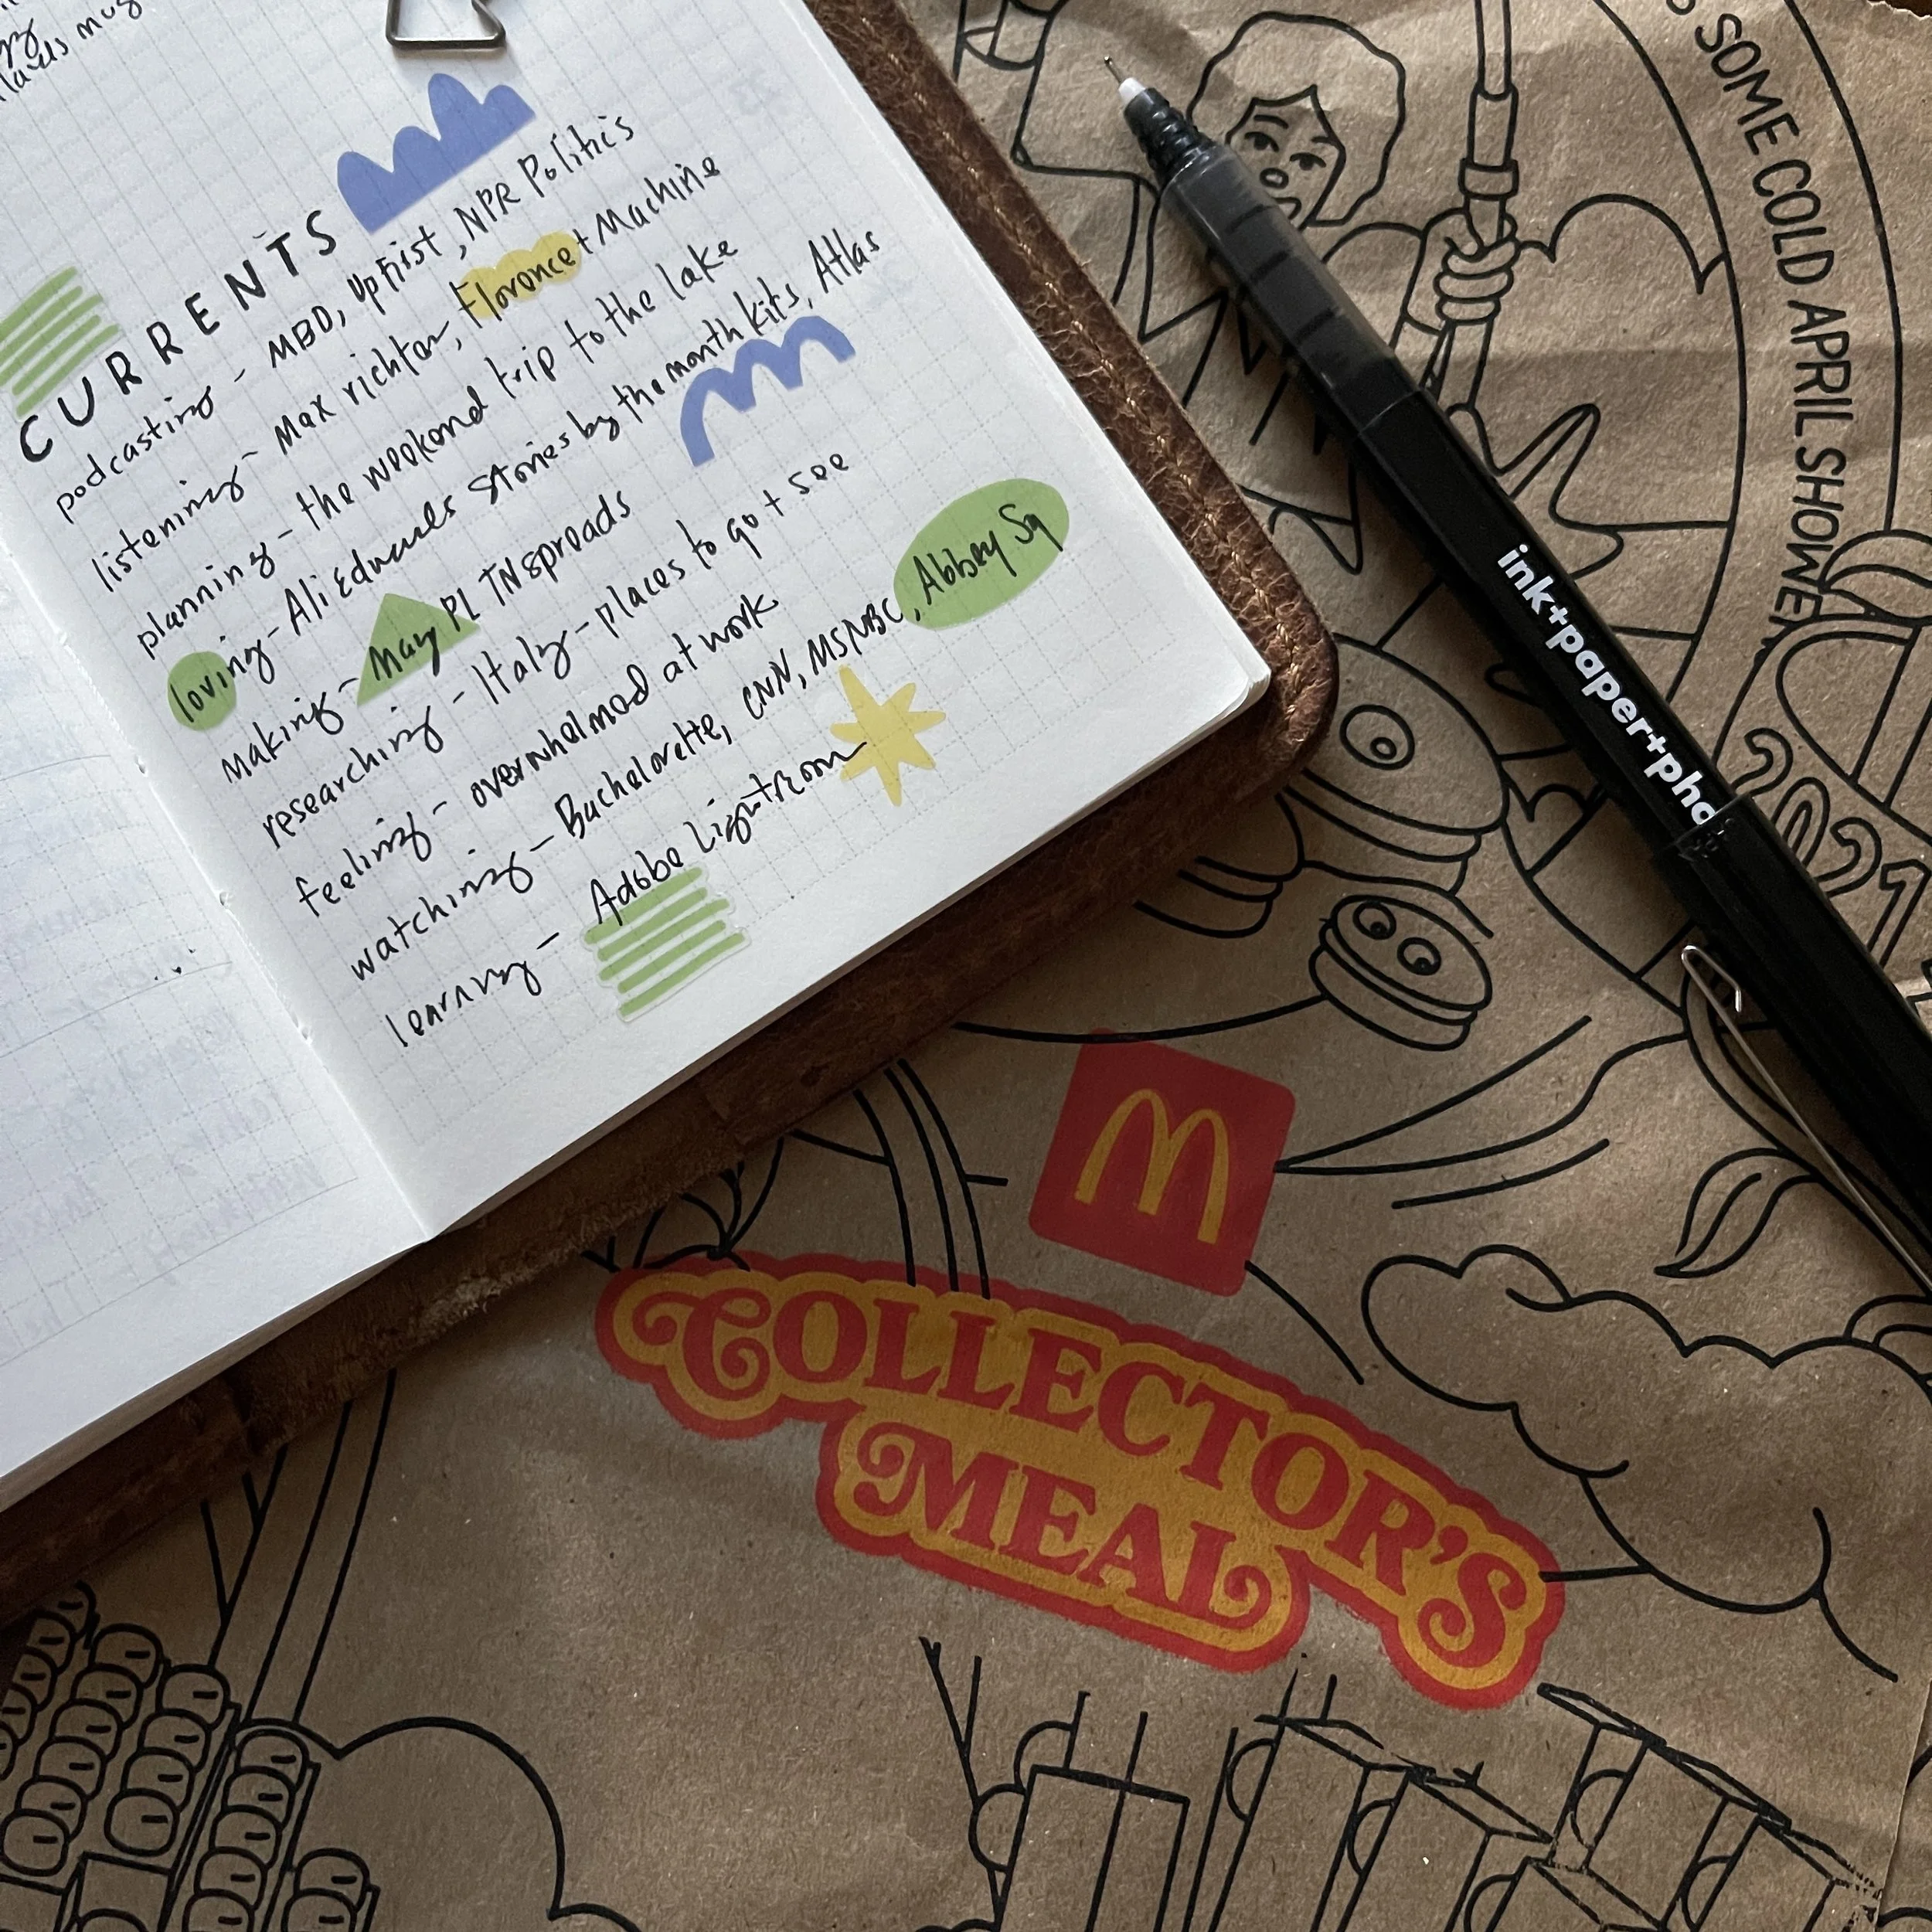 CURRENTS
podcasting - MBD, Upfirst, NPR Politics
listening - Max richter, Florence + Machine
planning - the weekend trip to the lake
loving - Ali Edwards Stories by the month kits, Atlas
making - May PL TN spreads
researching - Italy - places to go + see
feeling - overwhelmed at work
watching - Bachelorette, CNN, MSNBC, Abbey Sq
learning - Adobe Lightroom
SOME COLD APRIL SHOWE
ink+paper+pho
2021
M
COLLECTOR'S
MEAL